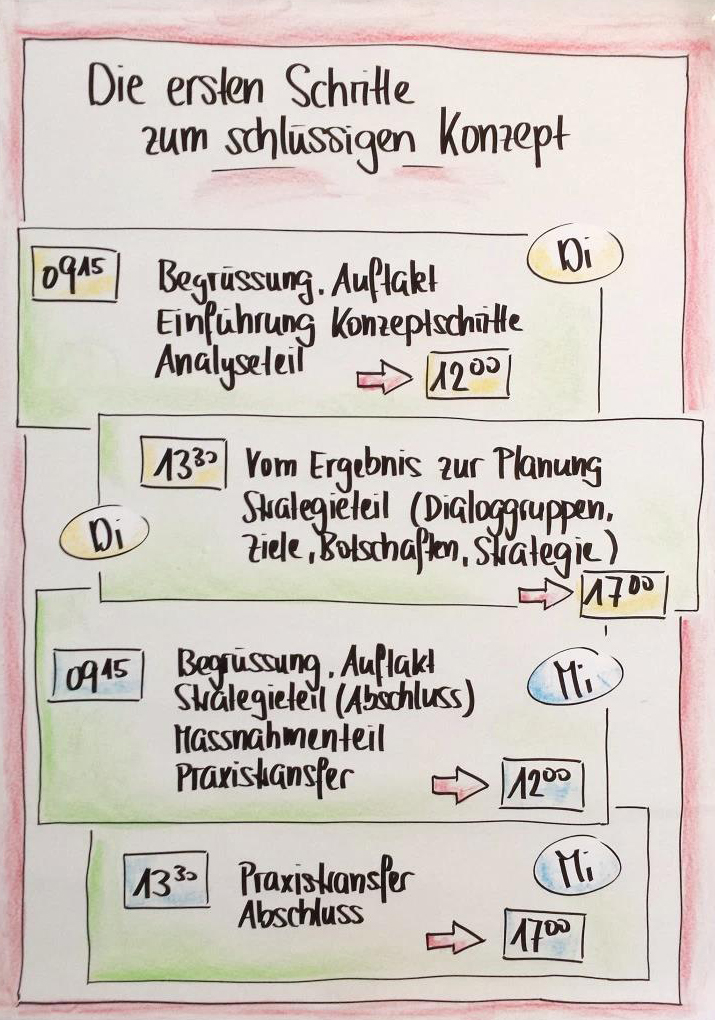 Die ersten Schritte
zum schlüssigen Konzept
Di
09 15
Begrüssung, Auftakt
Einführung Konzeptschritte
Analyseteil
12 00
13 30
Vom Ergebnis zur Planung
Strategieteil (Dialoggruppen,
Ziele, Botschaften, Strategie)
Di
17 00
09 15
Begrüssung, Auftakt
Mi
Strategieteil (Abschluss)
Massnahmenteil
Praxistransfer
12 00
13 30
Praxistransfer
Mi
Abschluss
17 00